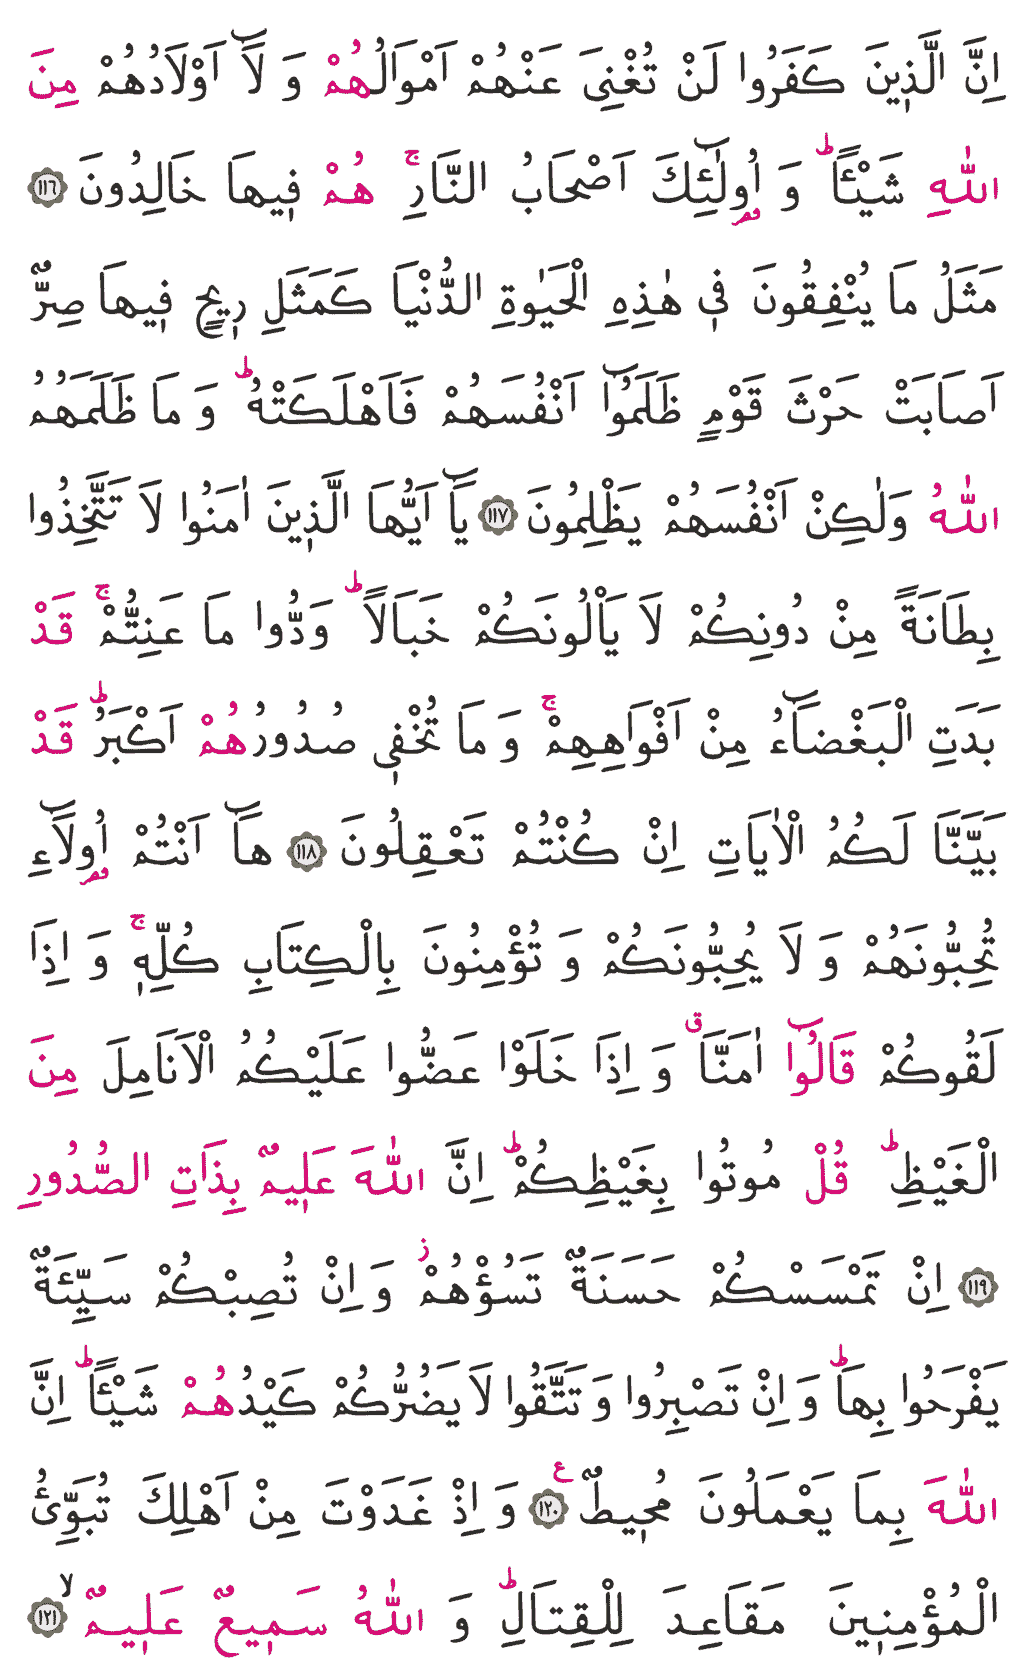 اِنَّ الَّذ۪ينَ كَفَرُوا لَنْ تُغْنِيَ عَنْهُمْ اَمْوَالُهُمْ وَ لَٓا اَوْلَادُهُمْ مِنَ
اللّٰهِ شَيْـًٔاۜ وَ اُو۬لٰٓئِكَ اَصْحَابُ النَّارِۚ هُمْ ف۪يهَا خَالِدُونَ ﴿١١٦﴾
مَثَلُ مَا يُنْفِقُونَ ف۪ي هٰذِهِ الْحَيٰوةِ الدُّنْيَا كَمَثَلِ ر۪يحٍ ف۪يهَا صِرٌّ
اَصَابَتْ حَرْثَ قَوْمٍ ظَلَمُٓوا اَنْفُسَهُمْ فَاَهْلَكَتْهُۜ وَ مَا ظَلَمَهُمُ
اللّٰهُ وَلٰكِنْ اَنْفُسَهُمْ يَظْلِمُونَ ﴿١١٧﴾ يَٓا اَيُّهَا الَّذ۪ينَ اٰمَنُوا لَا تَتَّخِذُوا
بِطَانَةً مِنْ دُونِكُمْ لَا يَاْلُونَكُمْ خَبَالًاۜ وَدُّوا مَا عَنِتُّمْۚ قَدْ
بَدَتِ الْبَغْضَٓاءُ مِنْ اَفْوَاهِهِمْۚ وَ مَا تُخْف۪ي صُدُورُهُمْ اَكْبَرُۜ قَدْ
بَيَّنَّا لَكُمُ الْاٰيَاتِ اِنْ كُنْتُمْ تَعْقِلُونَ ﴿١١٨﴾ هَٓا اَنْتُمْ اُو۬لَٓاءِ
تُحِبُّونَهُمْ وَ لَا يُحِبُّونَكُمْ وَ تُؤْمِنُونَ بِالْكِتَابِ كُلِّه۪ۚ وَ اِذَا
لَقُوكُمْ قَالُٓوا اٰمَنَّاۗ وَ اِذَا خَلَوْا عَضُّوا عَلَيْكُمُ الْاَنَامِلَ مِنَ
الْغَيْظِۜ قُلْ مُوتُوا بِغَيْظِكُمْۜ اِنَّ اللّٰهَ عَل۪يمٌ بِذَاتِ الصُّدُورِ
﴿١١٩﴾ اِنْ تَمْسَسْكُمْ حَسَنَةٌ تَسُؤْهُمْۘ وَ اِنْ تُصِبْكُمْ سَيِّئَةٌ
يَفْرَحُوا بِهَاۜ وَ اِنْ تَصْبِرُوا وَ تَتَّقُوا لَا يَضُرُّكُمْ كَيْدُهُمْ شَيْـًٔاۜ اِنَّ
اللّٰهَ بِمَا يَعْمَلُونَ مُح۪يطٌ ع ﴿١٢٠﴾ وَ اِذْ غَدَوْتَ مِنْ اَهْلِكَ تُبَوِّئُ
الْمُؤْمِن۪ينَ مَقَاعِدَ لِلْقِتَالِۜ وَ اللّٰهُ سَم۪يعٌ عَل۪يمٌۙ ﴿١٢١﴾